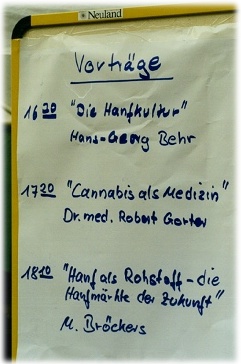 Neuland
Vorträge
16 30 "Die Hanfkultur"
Hans-Georg Behr
17 20 "Cannabis als Medizin"
Dr. med. Robert Gorter
18 10 "Hanf als Rohstoff - die
Hanfmärkte der Zukunft"
M. Bröckers